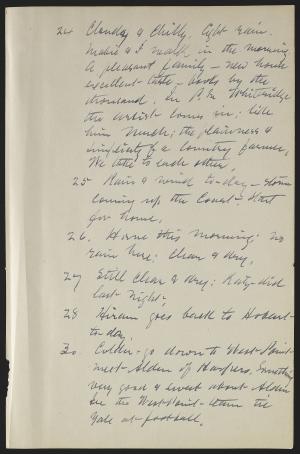 24 Cloudy & Chilly. light rain.
Mabie & I walk in the morning
A pleasant family - new house
excellent taste - books by the
thousand. In P.M. Whitredge
the artist comes in; like
him much; the plainness &
simplicity of a country farmer,
We take to each other.
25 Rain & wind to-day - storm
coming up the Coast - Start
for home.
26. Home this morning; no
rain here; Clear & dry.
27 Still clear & dry; Katy-did
last night.
28 Hiram goes back to Hobart
to-day.
30 Colder - go down to West-Point
meet Alden of Harpers. Something
very good & sweet about Alden
See the West-Point team tie
Yale at foot-ball.